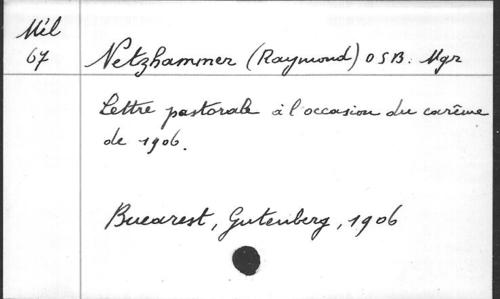 Mél
67
Netzhammer (Raymond) O S B. Mgr
Lettre pastorale à l'occasion du carême
de 1906.
Bucarest, Gutenberg, 1906